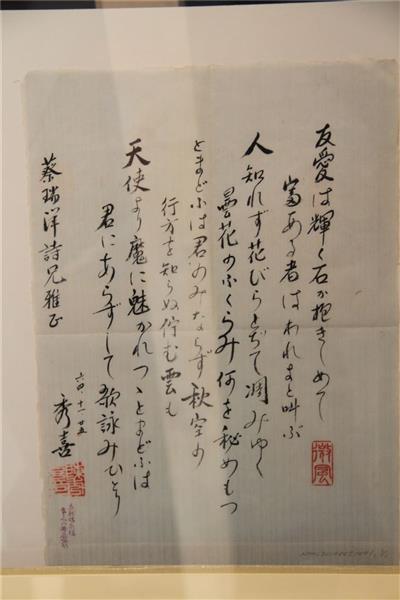 友愛は輝く石か抱きしめて
富ある者はわれと叫ぶ
微風
人知れず花びらとぢて凋みゆく
曇花のふくらみ何を秘めもつ
とまどふは君のみならず秋空の
行方を知らぬ佇む雲も
天使より魔に魅かれつゝとまどふは
君にあらずして歌詠みひとり
蔡瑞洋詩兄雅正
六四・十一・廿五
秀喜